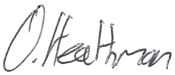 O. Heathman